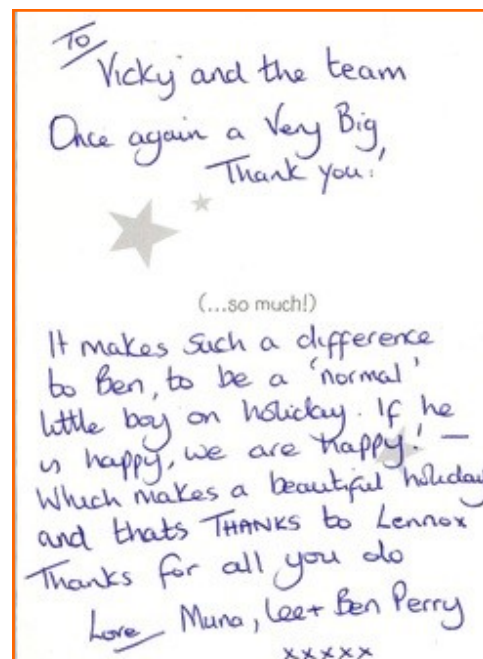 To
Vicky and the team
Once again a Very Big
Thank you!
(...so much!)
It makes such a difference
to Ben, to be a 'normal'
little boy on holiday. If he
is happy, we are happy! —
Which makes a beautiful holiday
and thats THANKS to Lennox
Thanks for all you do
Love Muna, Lee + Ben Perry
xxxxx